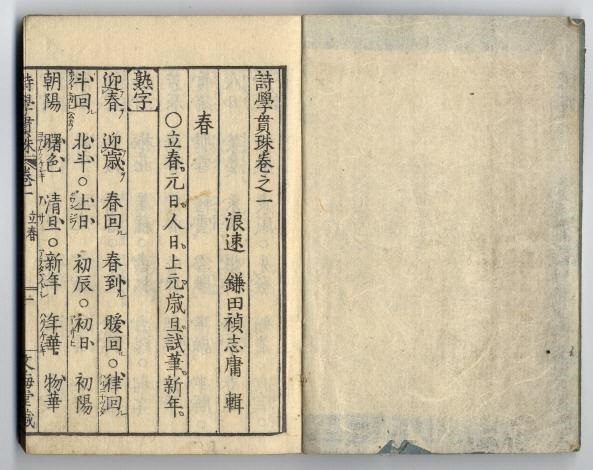 詩學貫珠卷之一
浪速 鎌田禎志庸 輯
春
○立春。元日。人日。上元歳且試筆。新年。
熟字
迎春 迎歳 春回 春到 暖回。律回
斗回 北斗。上日 初辰。初日 初陽
朝陽 曙色 清旦。新年 年華 物華
詩學貫珠 卷一 立春 一 文海堂藏